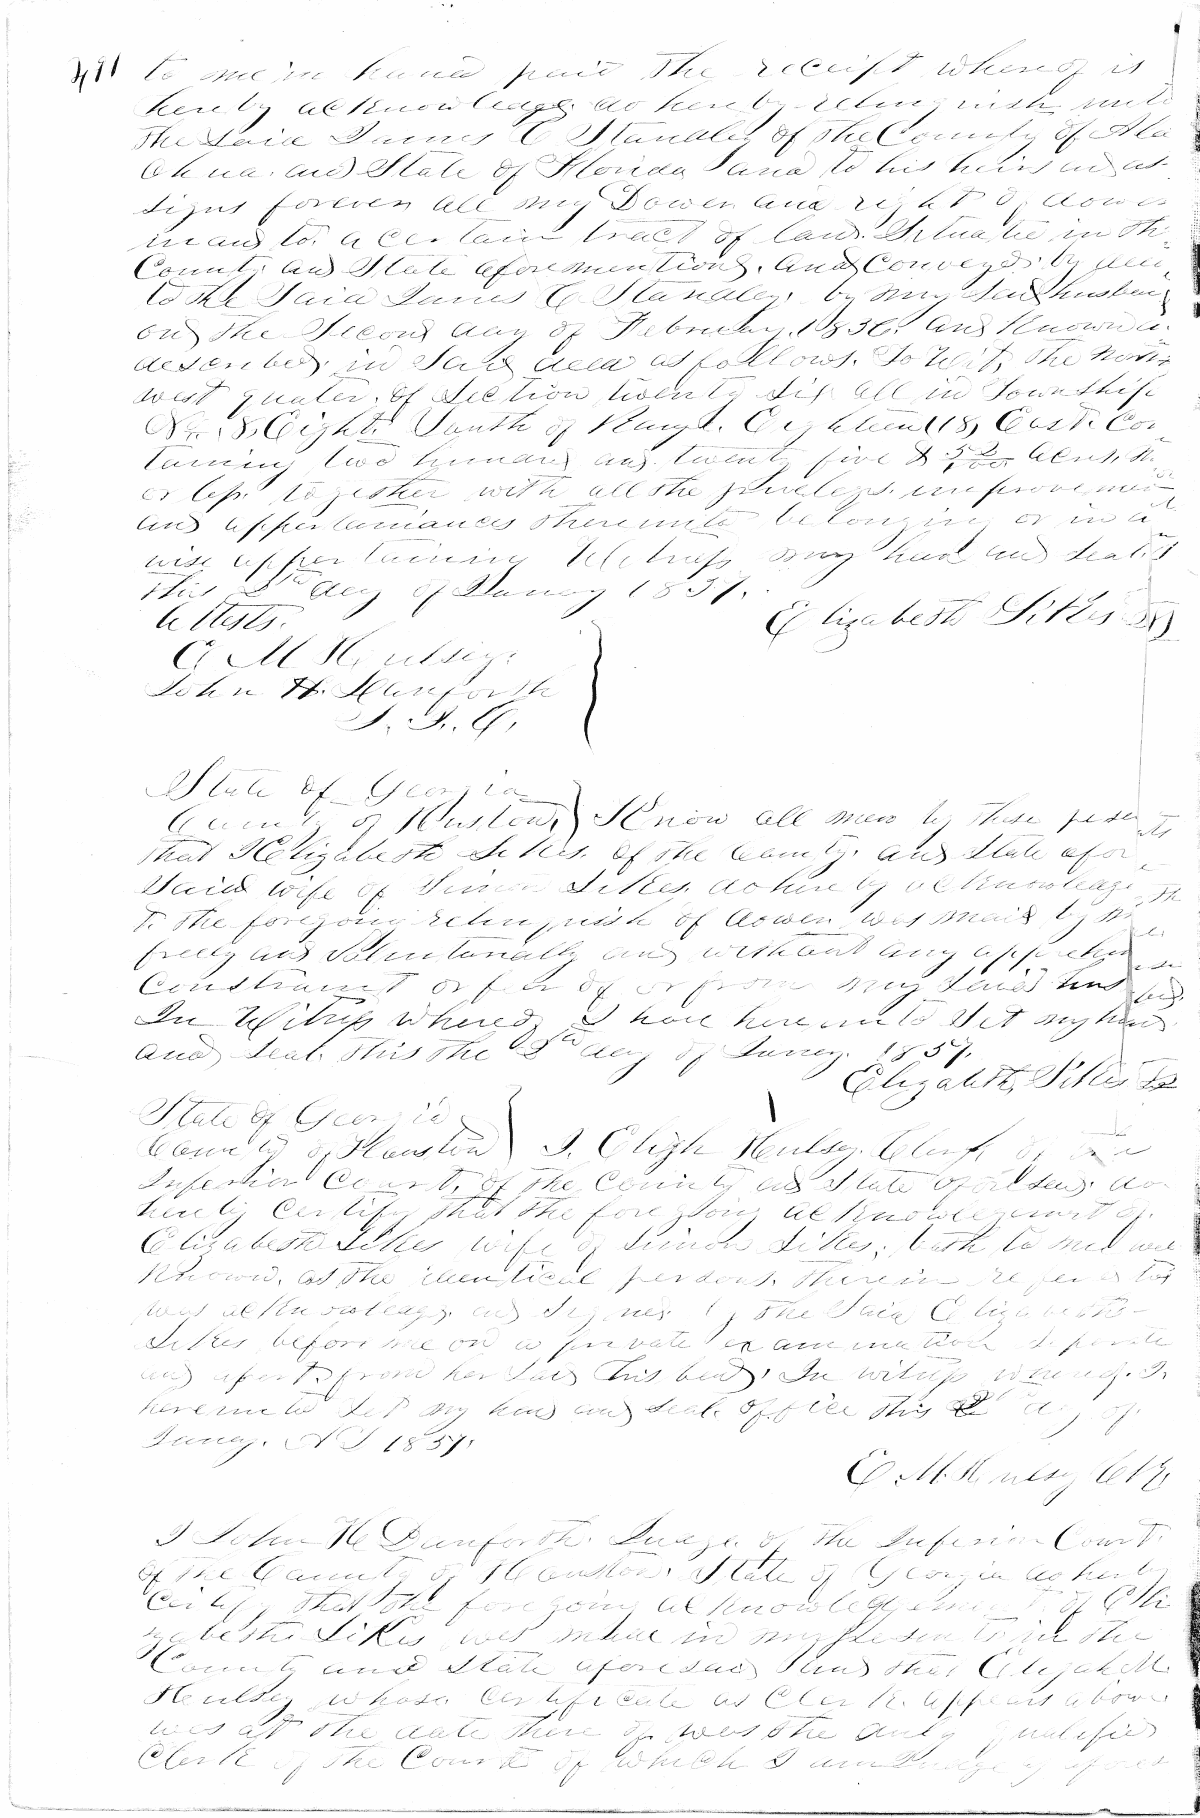 491 to me in hand paid The receipt whereof is
hereby acknowledge do hereby relinquish unto
the said James C Standley of the County of Ala
chua and State of Florida and to his heirs and as
signs forever all my Dower and right of dower
in and to a certain tract of land Situate in the
County and State aforementiond. and Conveyed by deed
to the Said James C Standley, by my said husband
on the Second day of February 1836. and Known &
described in Said deed as follows. To Wit, The North
west quater of Section twenty Six all in Township
No. 8, Eight South of Range Eighteen (18) East. Con
taining two hundred and twenty five & 52/100 acres,
or less together with all the priveleges improvement
and appertainances thereunto belonging or in a
wise appertaining Witness my hand and seal
this 2nd day of Januay 1837.
Attests. Elizabeth Sikes
E M Hulsey
John H. Danforth
J. I. C.
State of Georgia
County of Huston, Know all men by these presents
that I Elizabeth Sikes. of the County and State afor
Said wife of Simon Sikes, do hereby acknowledge th
t the foregoing relinquish of dower was maid by me
freely and voluntarially and without any apprehension
Constraint or fear of or from my Said husband
In Witness whereof I have hereunto Set my hand
and Seal this the 2nd day of Januay. 1837.
Elizabeth Sikes
State of Georgia
County of Houston I. Elijh Hulsey Clerk of the
Inferior Court, of the County and State aforesaid do
hereby Certify that the foregoing acknowledgement of
Elizabeth Sikes wife of Simon Sikes, both to me well
Known, as the identical persons therein refered to
was acknowledged and signed by the Said Elizabeth
Sikes before me on a private examination seperate
and apart from her Said Husband. In witness whereof. I
hereunto Set my hand and Seal of office this 2nd day of
Januay. AD 1837.
E M. Hulsey Clk
I John H Danforth. Judge of the Inferior Court
of the County of Houston. State of Georgia do hereby
Certify that the foregoing acknowledgement of Eli
zabeth Sikes was made in my presents in the
County and State aforesaid and that Elijah M.
Hulsey whose Certificate as Clerk appears above
was at the date there of was the duly qualified
Clerk of the Court of which I am Judge